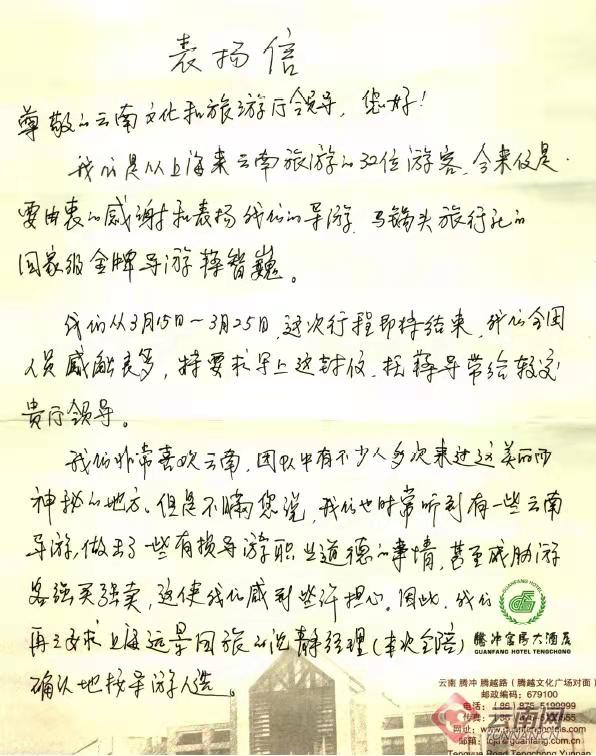 表扬信
尊敬的云南文化和旅游厅领导，您好！
我们是从上海来云南旅游的32位游客，今来信是
要由衷的感谢和表扬我们的导游，马锅头旅行社的
国家级金牌导游 智巍。
我们从3月15日～3月25日，这次行程即将结束，我们全团
人员感触良多，特要求呈上这封信，托 导带给转交
贵厅领导。
我们非常喜欢云南，团队中有不少人多次来过这美丽而
神秘的地方。但是不瞒您说，我们也时常听到有一些云南
导游，做出了一些有损导游职业道德的事情，甚至威胁游
客强买强卖，这使我们感到些许担心。因此，我们
再三要求上海远星国旅的沈静经理（本次全陪）
确认地接导游人选。
GUANFANG HOTEL
腾冲官房大酒店
GUANFANG HOTEL TENGCHONG
云南 腾冲 腾越路（腾越文化广场对面）
邮政编码：679100
电话：(86) 875-5199999
传真：
网址：www.
邮箱：tcjd@guanfang.com
Tengyue Road Tengchong Yunnan
云南网